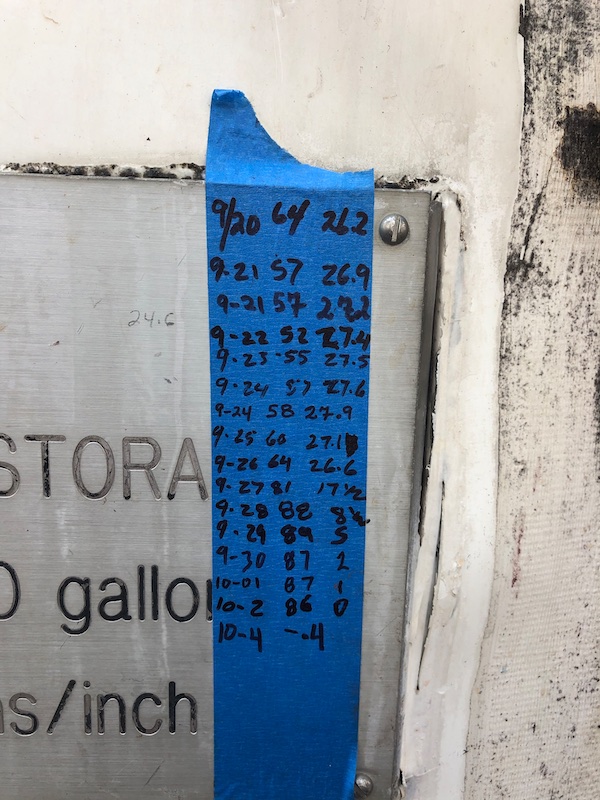 9/20 64 26.2
9-21 57 26.9
9-21 57 27.2
24.6
9-22 52 27.4
9-23 55 27.5
9-24 57 27.6
9-24 58 27.9
9-25 60 27.1
STORA
9-26 64 26.6
9-27 81 17 1/2
9-28 88
9-29 89 5
9-30 87 2
10-01 87 1
0 gallon
10-2 86 0
10-4 -.4
ns/inch